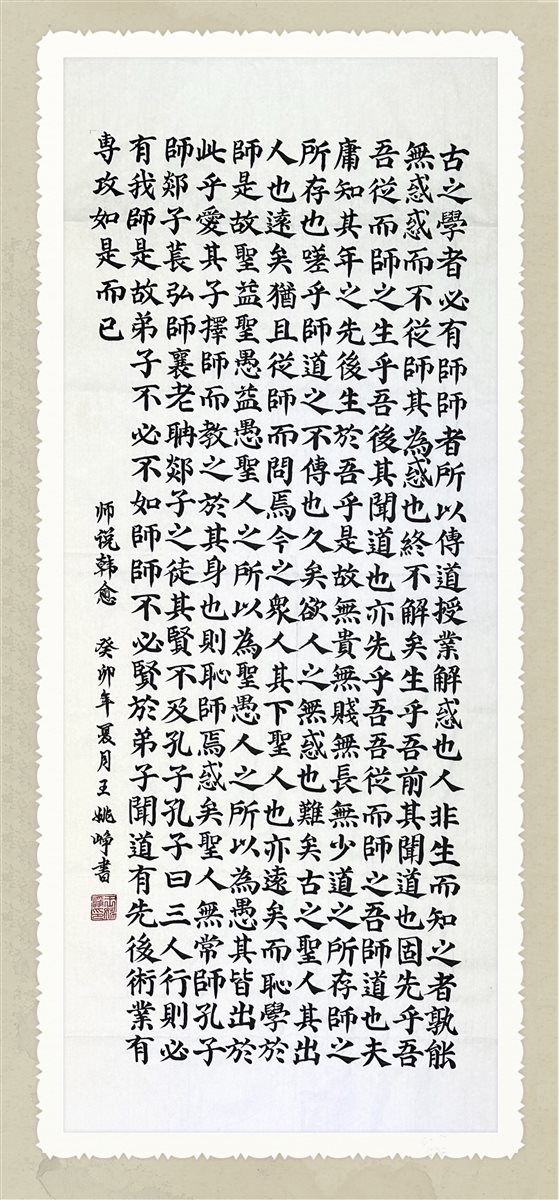 古之學者必有師師者所以傳道授業解惑也人非生而知之者孰能
無惑惑而不從師其為惑也終不解矣生乎吾前其聞道也固先乎吾
吾從而師之生乎吾後其聞道也亦先乎吾吾從而師之吾師道也夫
庸知其年之先後生於吾乎是故無貴無賤無長無少道之所存師之
所存也嗟乎師道之不傳也久矣欲人之無惑也難矣古之聖人其出
人也遠矣猶且從師而問焉今之衆人其下聖人也亦遠矣而恥學於
師是故聖益聖愚益愚聖人之所以為聖愚人之所以為愚其皆出於
此乎愛其子擇師而教之於其身也則恥師焉惑矣聖人無常師孔子
師郯子萇弘師襄老聃郯子之徒其賢不及孔子孔子曰三人行則必
有我師是故弟子不必不如師師不必賢於弟子聞道有先後術業有
專攻如是而已
师说韩愈 癸卯年夏月王姚峥書